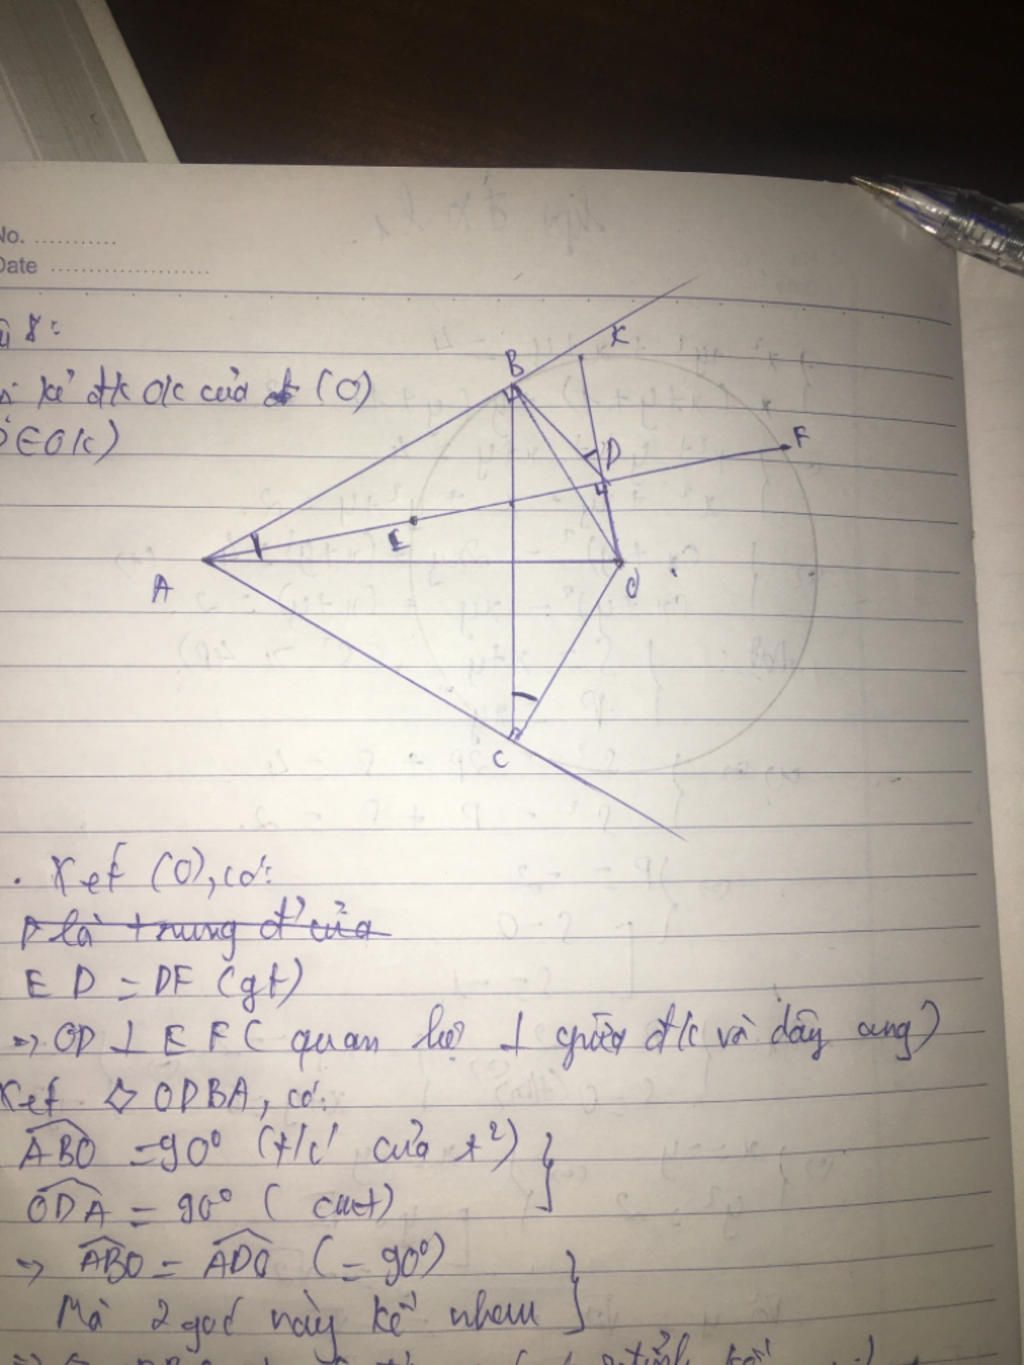 No. ...........
Date ......................
8:
kẻ đk OK của đt (O)
∈OK)
B
K
D
F
E
A
O
C
. Xét (O), có:
D là trung đ' của
ED = DF (gt)
=> OD ⊥ EF ( quan hệ ⊥ giữa đ/k và dây cung)
Xét ◇ ODBA, có:
ABO = 90° (t/c' của t²)
ODA = 90° ( cmt)
=> ABO = ADO (= 90°)
Mà 2 góc này kề nhau